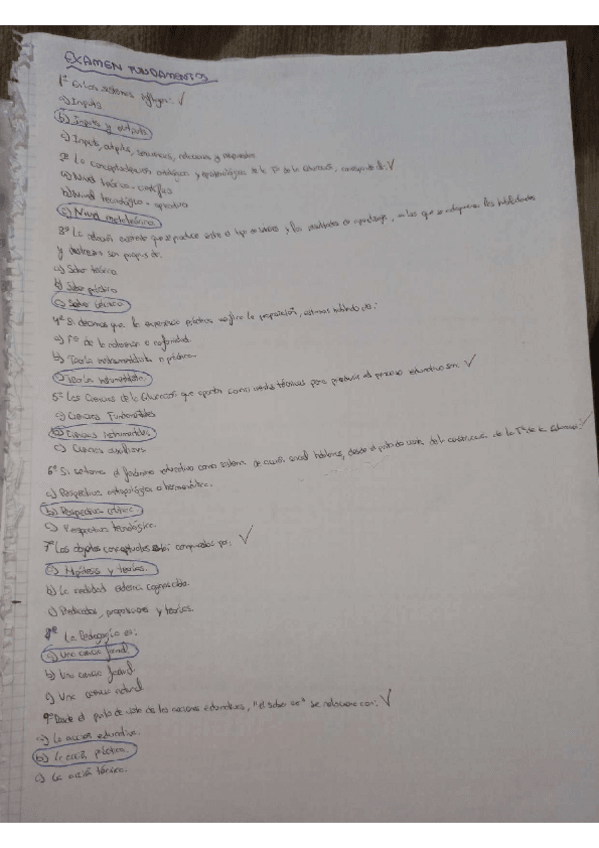 EXAMEN FUNDAMENTOS
1º En los sistemas influyen: ✓
a) Inputs
b) Inputs y outputs
c) Inputs, outputs, estructuras, relaciones y
2º La conceptualización ontológica y epistemológica de la Tª de la Educación, corresponde al: ✓
a) Nivel teórico-científico
b) Nivel tecnológico-
c) Nivel metateórico
3º La relación que se produce entre y los resultados de aprendizaje, en los que se adquieren las habilidades
y destrezas son propias de:
a) Saber teórico
b) Saber práctico
c) Saber técnico
4º Si decimos que la experiencia práctica la proposición, estamos hablando de:
a) Tª de la
b) Teoría instrumentalista o práctica
c) Teoría
5º Las Ciencias de la Educación que aportan conocimientos técnicos para producir el proceso educativo son: ✓
a) Ciencias Fundamentales
b) Ciencias instrumentales
c) Ciencias auxiliares
6º Si el fenómeno educativo como sistema de acción social hablamos, desde el punto de vista del de la Tª de la Educación: ✓
a) Perspectiva antropológica o hermenéutica.
b) Perspectiva crítica
c) Perspectiva tecnológica.
7º Los objetos conceptuales están compuestos por: ✓
a) Hipótesis y teorías.
b) La realidad externa cognoscible.
c) Predicados, proposiciones y teorías.
8º La Pedagogía es:
a) Una ciencia
b) Una ciencia formal
c) Una ciencia natural
9º Desde el punto de vista de las acciones educativas, "el saber " se relaciona con: ✓
a) La acción educativa.
b) La acción práctica.
c) La acción técnica.